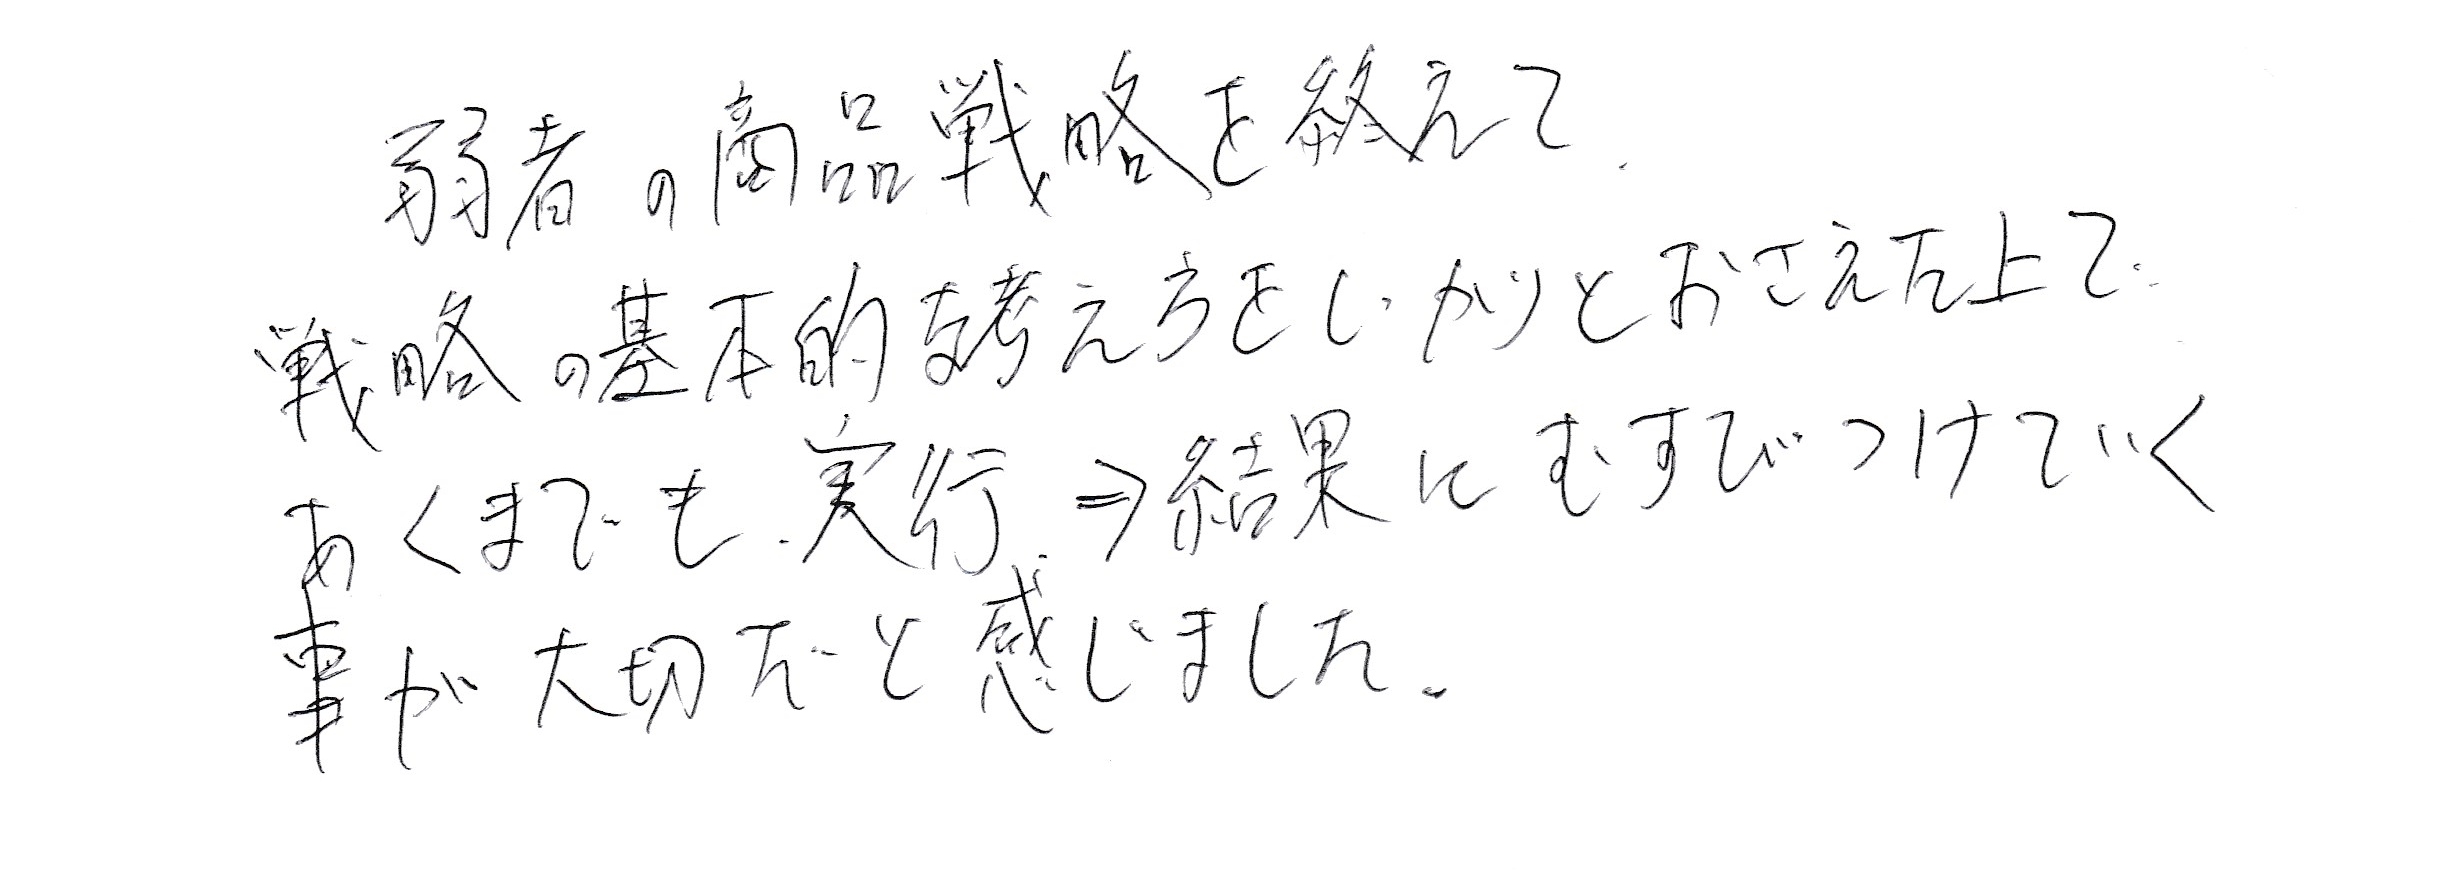 弱者の商品戦略を終えて、
戦略の基本的な考え方をしっかりとおさえた上で、
あくまでも、実行⇒結果にむすびつけていく
事が大切だと感じました。